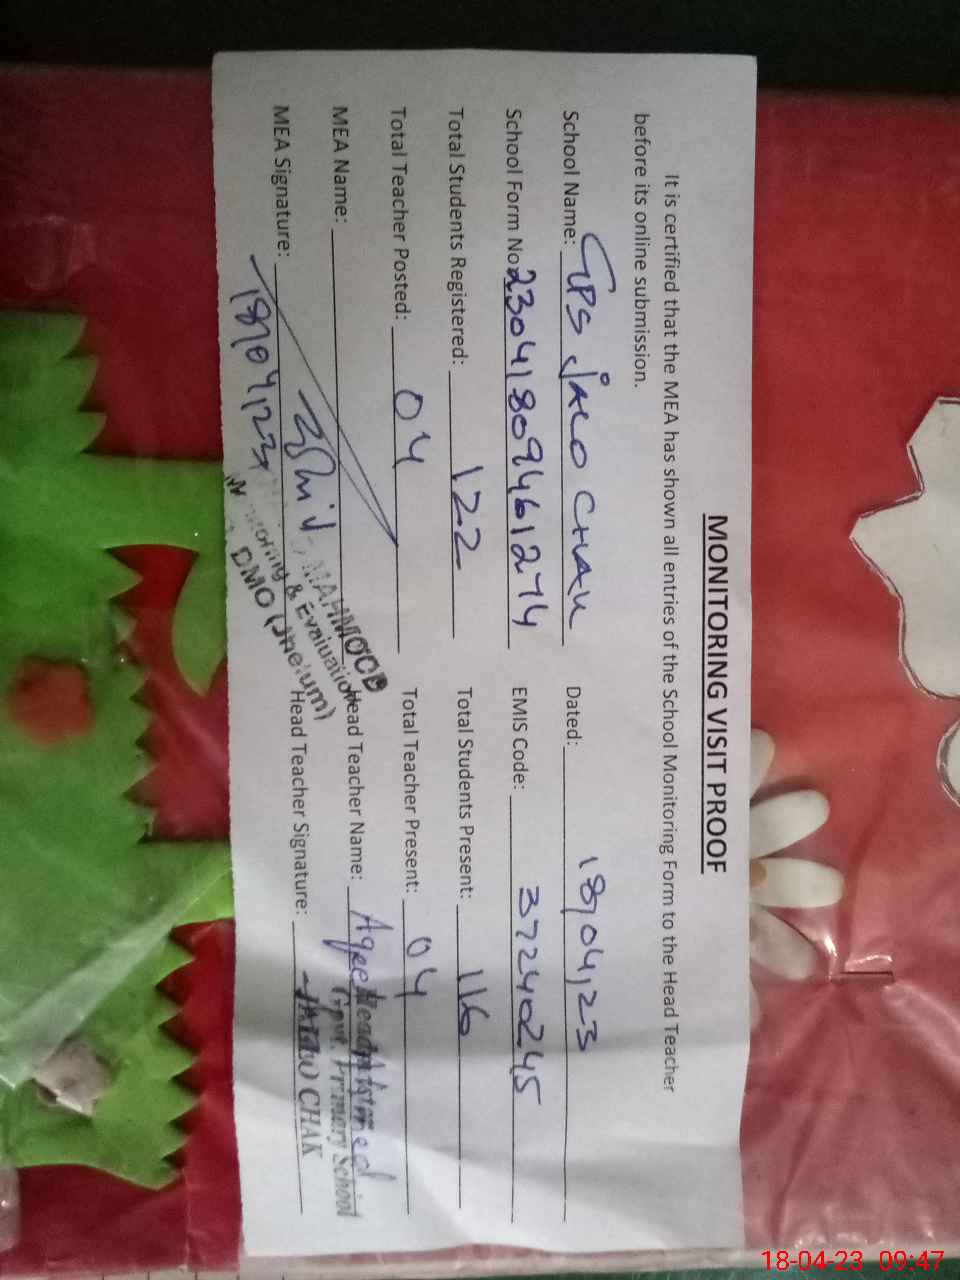 MONITORING VISIT PROOF
It is certified that the MEA has shown all entries of the School Monitoring Form to the Head Teacher
before its online submission.
School Name: GPS JALO CHAK Dated: 18/04/23
School Form No: 23041809461274 EMIS Code: 37240245
Total Students Registered: 122 Total Students Present: 116
Total Teacher Posted: 04 Total Teacher Present: 04
MEA Name: Head Teacher Name: Aqeel Ahmed
MEA Signature: Head Teacher Signature:
18/04/23
MAHMOOD
Monitoring & Evaluation
DMO (Jhelum)
Head
Govt. Primary School
CHAK
18-04-23 09:47